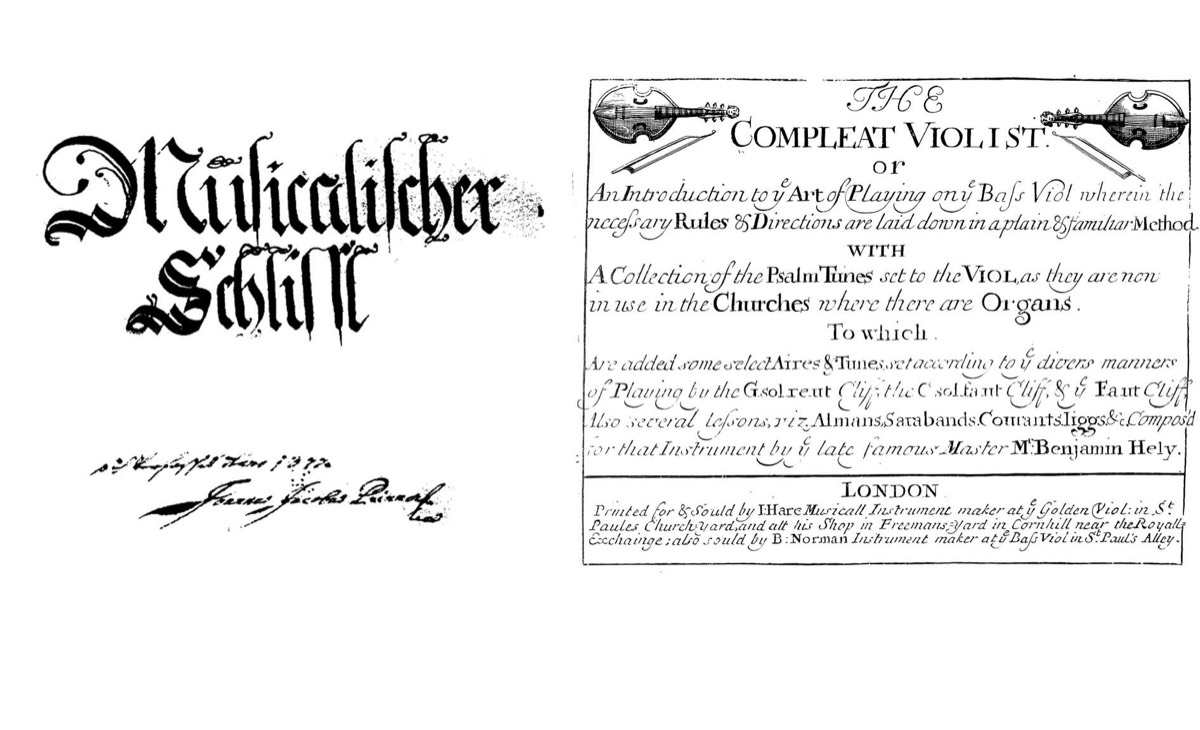 Musicalischer
Schlissl
1677
THE
COMPLEAT VIOLIST.
or
An Introduction to yͤ Art of Playing on yͤ Baſs Viol wherein the
neceſsary Rules & Directions are laid down in a plain & familiar Method.
WITH
A Collection of the Psalm Tunes set to the VIOL, as they are now
in use in the Churches where there are Organs.
To which.
Are added some select Aires & Tunes, set according to yͤ divers manners
of Playing by the Gsolreut Cliff, the C solfaut Cliff, & yͤ Faut Cliff,
Also several leſsons, viz, Almans, Sarabands, Courants, Jiggs, &c. Compos'd
for that Instrument by yͤ late famous Master Mr. Benjamin Hely.
LONDON
Printed for & Sould by I: Hare Musicall Instrument maker at yͤ Golden Viol: in St.
Paules Church yard, and att his Shop in Freemans, Yard in Cornhill near the Royall
Exchainge; also sould by B: Norman Instrument maker at yͤ Baſs Viol in St. Paul's Alley.